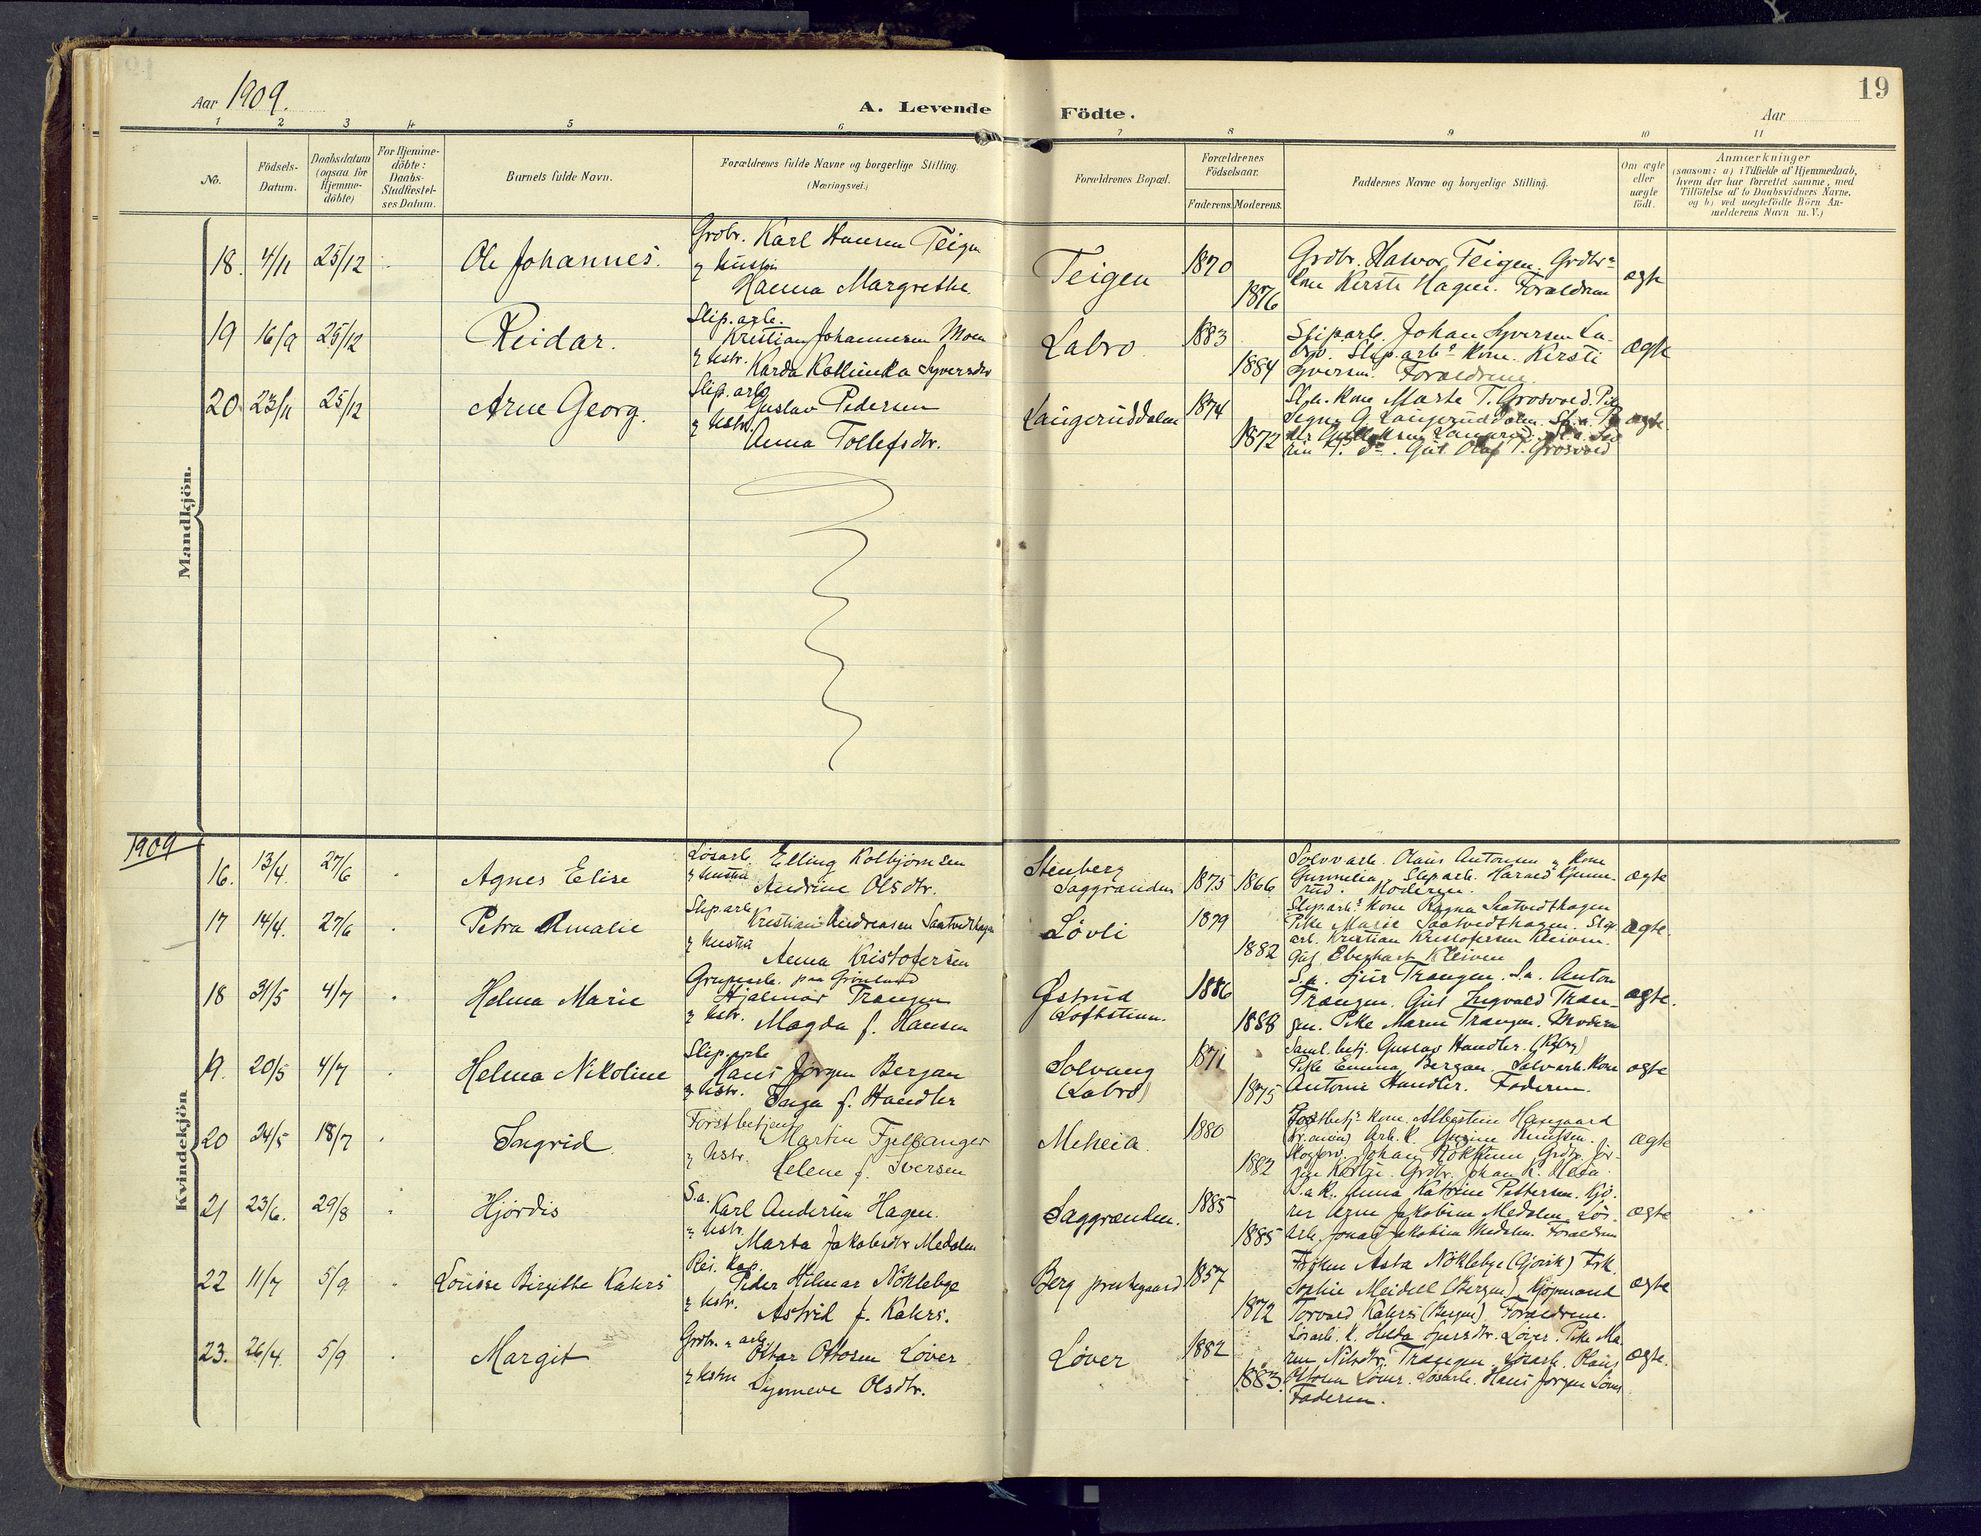 19
Aar 1909.
A. Levende Födte.
Aar
1 2 3 4 5 6 7 8 9 10 11
No.
Födsels-
Datum.
Daabsdatum
(ogsaa for
Hjemme-
döbte)
For Hjemme-
döbte:
Daabs-
Stadfæstel-
ses Datum.
Barnets fulde Navn.
Forældrenes fulde Navne og borgerlige Stilling.
(Næringsvei.)
Forældrenes Bopæl.
Forældrenes
Födselsaar.
Faderens. Moderens.
Faddernes Navne og borgerlige Stilling.
Om ægte
eller
uægte
födt.
Anmærkninger
(saasom: a) i Tilfælde af Hjemmedaab,
hvem der har forrettet samme, med
Tilföielse af to Daabsvidners Navne,
og b) ved uegtefödte Börn An-
melderens Navn m. V.)
Mandkjön.
18. 4/11 25/12 Ole Johannes.
Grdbr. Karl Hansen Teigen
& hustru
Hanna Margrethe.
Teigen 1870
1876
Grdbr. Halvor Teigen. Grdbr
kone Kirsti Hagen. Forældrene
ægte
19 16/9 25/12 Reidar.
Slip.arb.
Kristian Johannesen Moen
& hstr. Karda Syversdtr
Labro 1883
1884
Sliparb. Johan Syversen La-
bro. Slip.arbs kone Kirsti
Syversen. Forældrene.
ægte
20. 23/11 25/12 Arne Georg.
Slip.arb.
Gustav Pedersen
& hstr.
Anna Tollefsdtr.
Laugeruddalen 1874
1872
kone Marte T. Grosvold. Pike
Signe G. Laugeruddalen.
Olaf T. Grosvold
ægte
1909
Kvindekjön
16. 13/4. 27/6 Agnes Elise
Løsarb. Elling Kolbjørnsen
& hustru
Andrine Olsdtr.
Stenberg
Saggrenden 1875 1866
Sølvarb. Olaus Antonsen & kone
Gunnelia. Sliparb. Harald
Moderen.
ægte
17 14/4. 27/6 Petra Amalie
Slip.arb
Kristian Andreasen Saatvedthagen
& hustru
Anna Kristofersen
Løvli 1879
1882
Sliparbs kone Ragna Saatvedthagen
Pike Marie Saatvedthagen. Slip
arb. Kristian Kristofersen Kleiven.
Gut. Eberhart Kleiven
ægte.
18 31/5 4/7 Helma Marie
Grubearb. paa Grønland
Hjalmar Trangen
& hstr. Magda f. Hansen
Østrud
Loftstuen. 1886
1888
S.a. Sjur Trangen. S.a. Anton
Trangen. Gut Ingvald Tran-
gen. Pike Maren Trangen. Moderen
ægte.
19. 20/5 4/7 Helma Nikoline
Slip.arb
Hans Jørgen Bergan
& hstr. Inga f. Handler
Solvang
(Labro) 1871
1875
Saml. betj. Gustav Handler. (Kgbrg)
Pike Emma Bergan. Sølvarb. kone
Antonie Handler. Faderen.
ægte
20 24/5 18/7 Ingrid.
Forstbetjent
Martin Fjelbanger
& hstr.
Helene f. Iversen
Meheia 1880
1882
Forstbetjs kone Albertine Haugaard
Johan
Grdbr. Johan K. Heia.
ægte
21 23/6. 29/8 Hjørdis
S.a. Karl Andersen Hagen.
& hstr.
Marta Jakobsdtr Medalen
Saggrenden. 1885
1885
S.a.k. Anna Katrine Pettersen.
Jakobine Medalen. Løs-
arb. Jonas Jakobsen Medalen. Forældrene
ægte
22 11/7 5/9. Louise Birgithe Kahrs
Res. kap.
Peder Hilmar Nøkleby
& hstr.
Astrid f. Kahrs.
Berg prestegaard 1857
1872
Frøken Asta Nøklebye (Gjøvik) Frk.
Sophie Meidell (Bergen) Kjøpmand
Torvald Kahrs (Bergen). Forældrene.
ægte
23. 26/4. 5/9 Margit
Grdbr. & arb.
Ottar Ottosen Løver
& hstru
Synneve Olsdtr.
Løver 1882
1883.
Løsarb. k. Hilda Sjursdtr. Løver. Pike Ma-
ren Nilsdtr. Trangen. Løsarb. Olaus
Ottosen Løver. Løsarb. Hans Jørgen Løver
Faderen.
ægte.